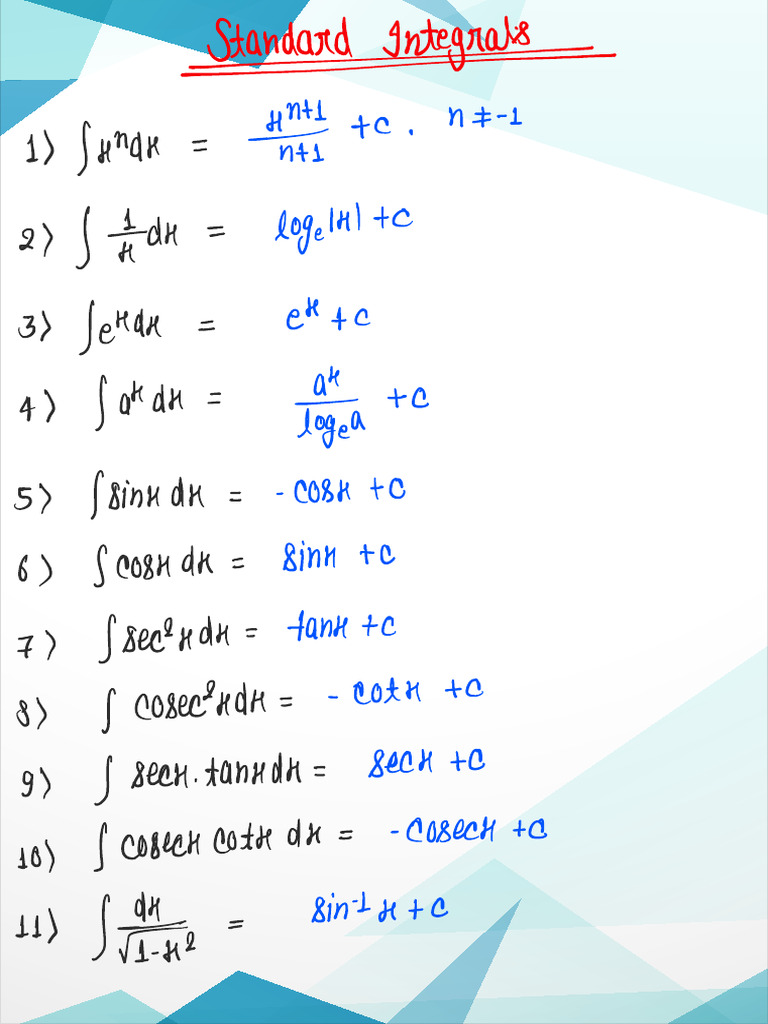 Standard Integrals
1) ∫xⁿdx = xⁿ⁺¹/n+1 +c. n≠-1
2) ∫ 1/x dx = logₑ|x| +c
3) ∫eˣdx = eˣ +c
4) ∫aˣ dx = aˣ/logₑa +c
5) ∫sinx dx = -cosx +c
6) ∫cosx dx = sinx +c
7) ∫sec²x dx = tanx +c
8) ∫cosec²x dx = -cotx +c
9) ∫secx.tanx dx = secx +c
10) ∫cosecx cotx dx = -cosecx +c
11) ∫dx/√1-x² = sin⁻¹x +c